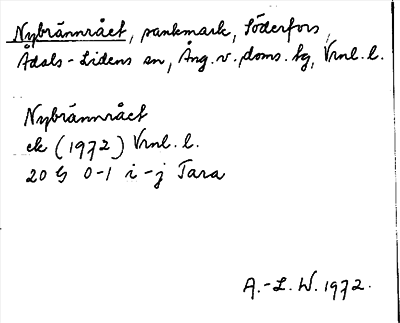 Nybrännrået, sankmark, Söderfors,
Ådals-Lidens sn, Ång. v. doms. tg, Vrnl. l.
Nybrännrået
ek (1972) Vrnl. l.
20 G 0-1 i-j Tara
A.-L. W. 1972.